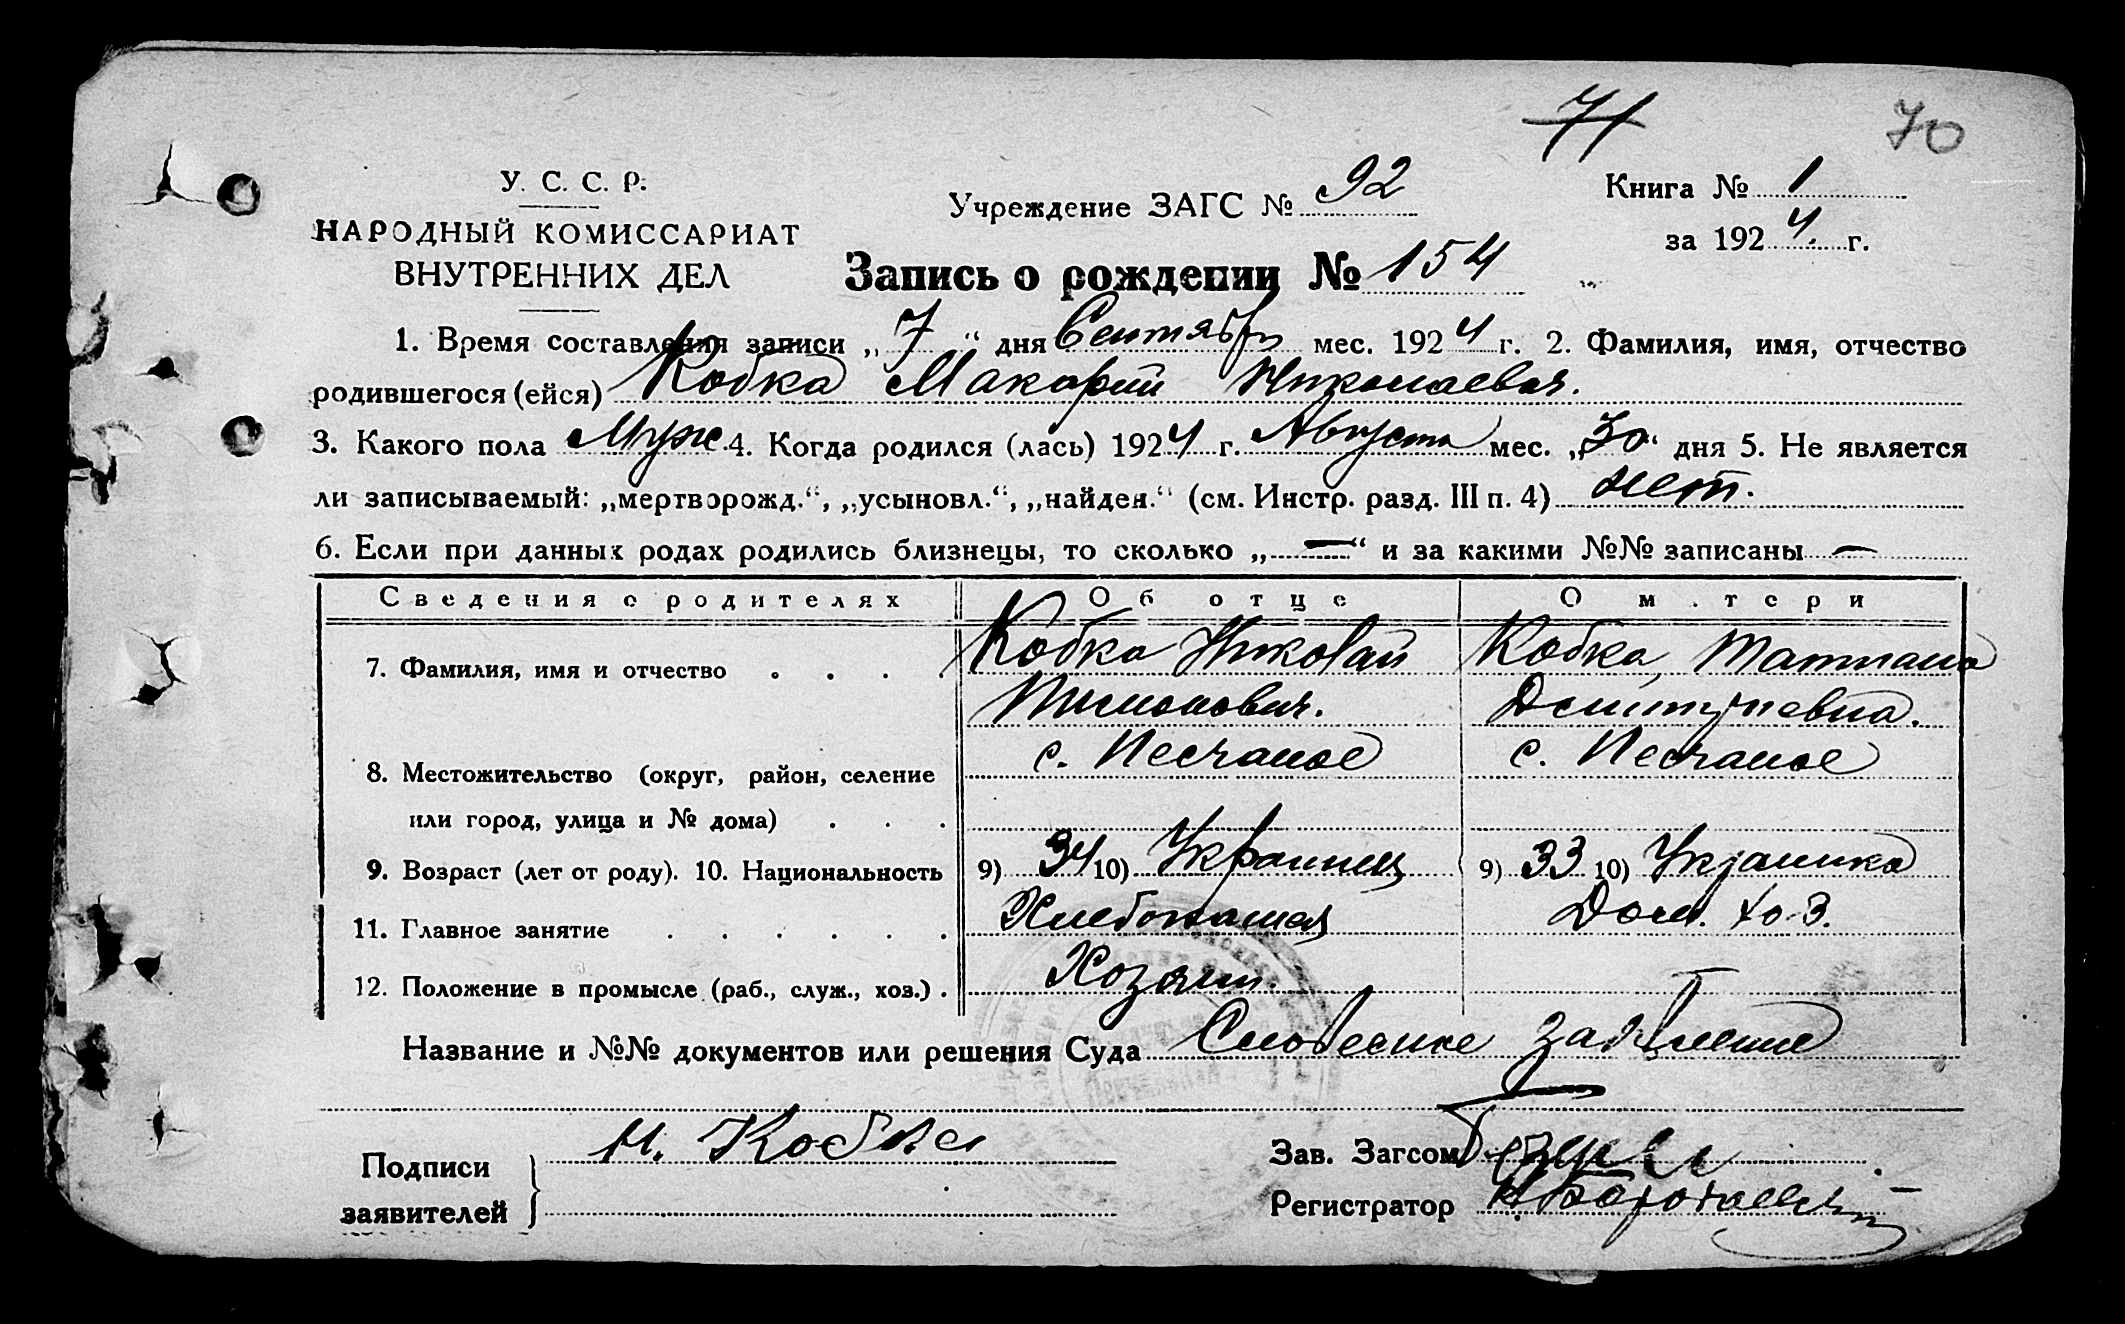 71 70
У. С. С. Р.
Учреждение ЗАГС № 92
Книга № 1
НАРОДНЫЙ КОМИССАРИАТ
за 1924 г.
ВНУТРЕННИХ ДЕЛ
Запись о рождении № 154
1. Время составления записи „7“ дня Сентября мес. 1924 г. 2. Фамилия, имя, отчество
родившегося (ейся) Кобка Макарий Николаевич.
3. Какого пола Муж. 4. Когда родился (лась) 1924 г. Августа мес. „30“ дня 5. Не является
ли записываемый: „мертворожд.“, „усыновл.“, „найден.“ (см. Инстр. разд. III п. 4) нет.
6. Если при данных родах родились близнецы, то сколько „—“ и за какими №№ записаны —
Сведения о родителях Об отце О матери
7. Фамилия, имя и отчество . . . . Кобка Николай Кобка Татиана
Тимонович. Дмитриевна.
с. Песчаное с. Песчаное
8. Местожительство (округ, район, селение
или город, улица и № дома) . . .
9. Возраст (лет от роду). 10. Национальность 9) 34 10) Украинец 9) 33 10) Украинка
11. Главное занятие . . . . . . Хлебопашец Дом. хо-з.
12. Положение в промысле (раб., служ., хоз.) . Хозяин.
Название и №№ документов или решения Суда Словесное заявление
Подписи Н. Кобка Зав. Загсом
заявителей Регистратор